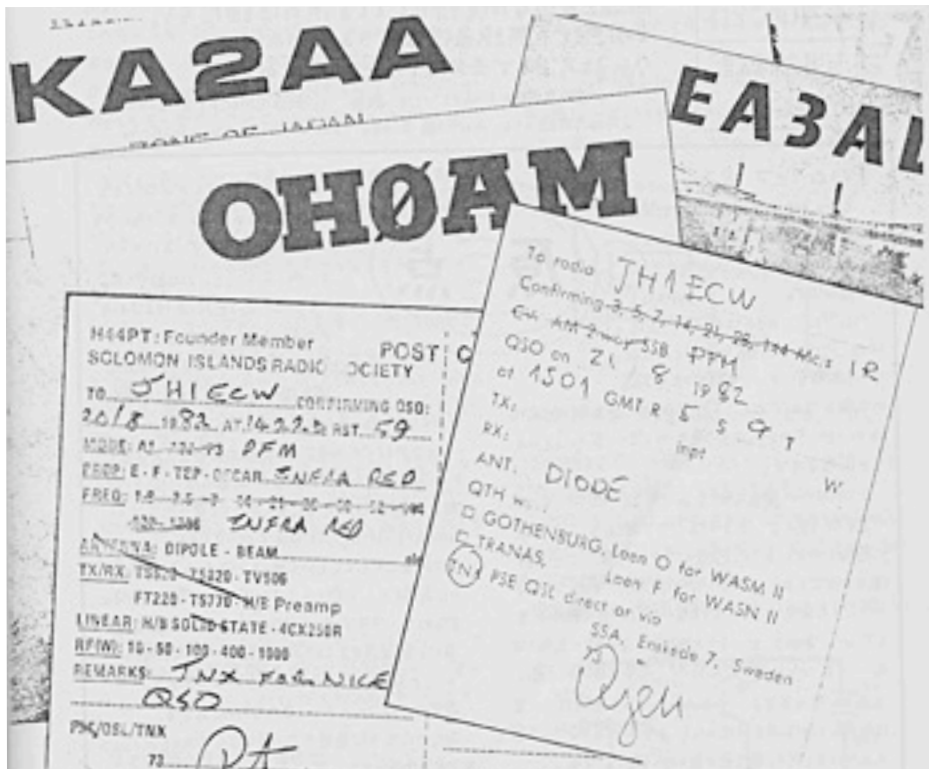 KA2AA
ZONE OF JAPAN
EA3AL
OHØAM
H44PT: Founder Member
SOLOMON ISLANDS RADIO SOCIETY
POST C
TO JH1ECW CONFIRMING QSO:
20/8 1982 AT 1422 RST 59
MODE: A1 PFM
PROP: E - F - TEP - OSCAR INFRA RED
FREQ:
INFRA RED
ANTENNA: DIPOLE - BEAM
TX/RX: TS520 - TS820 - TV506
FT220 - TS770 - H/B Preamp
LINEAR: H/B SOLID STATE - 4CX250R
RF(W): 10 - 50 - 100 - 400 - 1000
REMARKS: TNX FOR NICE
QSO
PSE/QSL/TNX
73
To radio JH1ECW
Confirming 3,5, 7, 14, 21, 28, 144 Mc:s IR
Cw AM 2-way SSB PFM
QSO on 21 8 1982
at 1501 GMT R 5 S 9 T
TX: inpt W
RX:
ANT. DIODE
QTH
GOTHENBURG, Laen O for WASM II
TRANAS, Laen F for WASN II
TNX PSE QSL direct or via
SSA, Enskede 7, Sweden
73